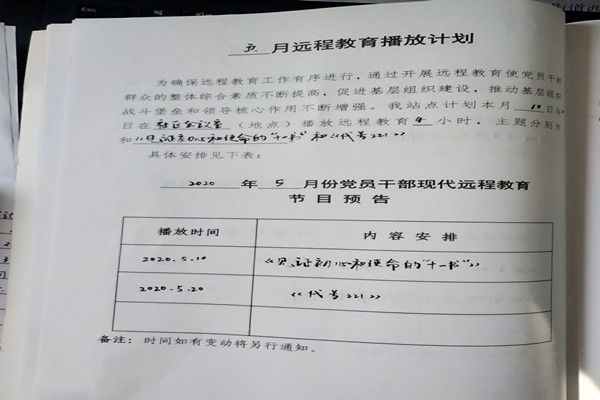 Esc
五 月远程教育播放计划
为确保远程教育工作有序进行，通过开展远程教育使党员干部
群众的整体综合素质不断提高，促进基层组织建设，推动基层组织
战斗堡垒和领导核心作用不断增强。我站点计划本月 10 日与
日在 社区会议室 （地点）播放远程教育 4 小时，主题分别为
和《见证初心和使命的"十一书"》和《代号221》
具体安排见下表：
2020 年 5 月份党员干部现代远程教育
节目预告
播放时间 内容安排
2020.5.10 《见证初心和使命的"十一书"》
2020.5.20 《代号221》
备注：时间如有变动将另行通知。